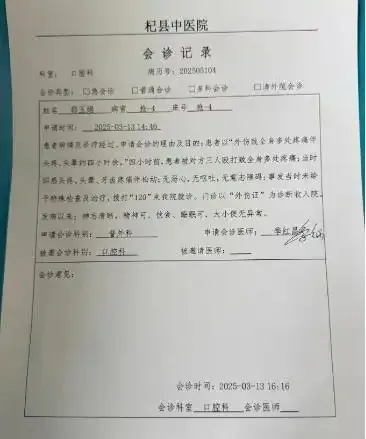 杞县中医院
会诊记录
科室： 口腔科 病历号：202505104
会诊类型： □急会诊 □普通会诊 □多科会诊 □请外院会诊
姓名 病室 抢-4 床号 抢-4
申请时间： 2025-03-13 14:46
患者病情及诊疗经过、申请会诊的理由及目的：患者以"外伤致全身多处疼痛伴
头疼、头晕约四小时余。"四小时前，患者被对方三人殴打致全身多处疼痛；当时
即感头疼、头晕、牙齿疼痛伴松动；无恶心，无呕吐，无意志障碍；事发当时未给
予特殊检查及治疗，拨打"120"来我院就诊，门诊以"外伤证"为诊断收入院。
发病以来：神志清晰，精神可，饮食、睡眠可，大小便无异常。
申请会诊科别： 普外科 申请会诊医师： 李红昌
被邀会诊科别： 口腔科 被邀请医师：
会诊意见：
会诊时间：2025-03-13 16:16
会诊科室 口腔科 会诊医师